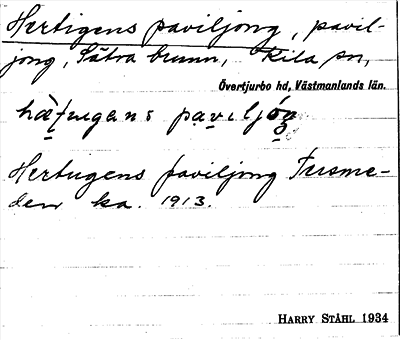 Hertigens paviljong, pavil-
jong, Sätra brunn, Kila sn,
Övertjurbo hd, Västmanlands län.
paviljåŋ
Hertugens paviljong Fusme-
den ka. 1913.
HARRY STÅHL 1934